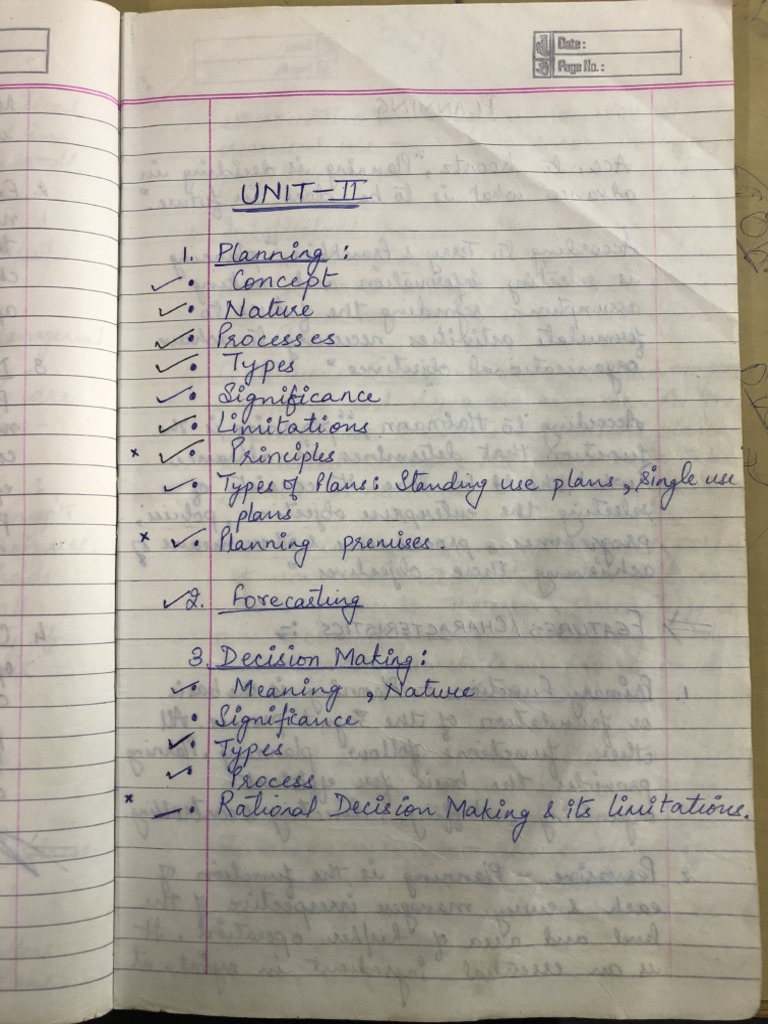 Date:
Page No.:
UNIT-II
1. Planning:
✓• Concept
✓• Nature
✓• Processes
✓• Types
✓• Significance
✓• Limitations
x ✓• Principles
✓• Types of Plans: Standing use plans, Single use
plans
x ✓• Planning premises.
✓2. Forecasting
3. Decision Making:
✓• Meaning, Nature
• Significance
✓• Types
✓• Process
x –• Rational Decision Making & its limitations.